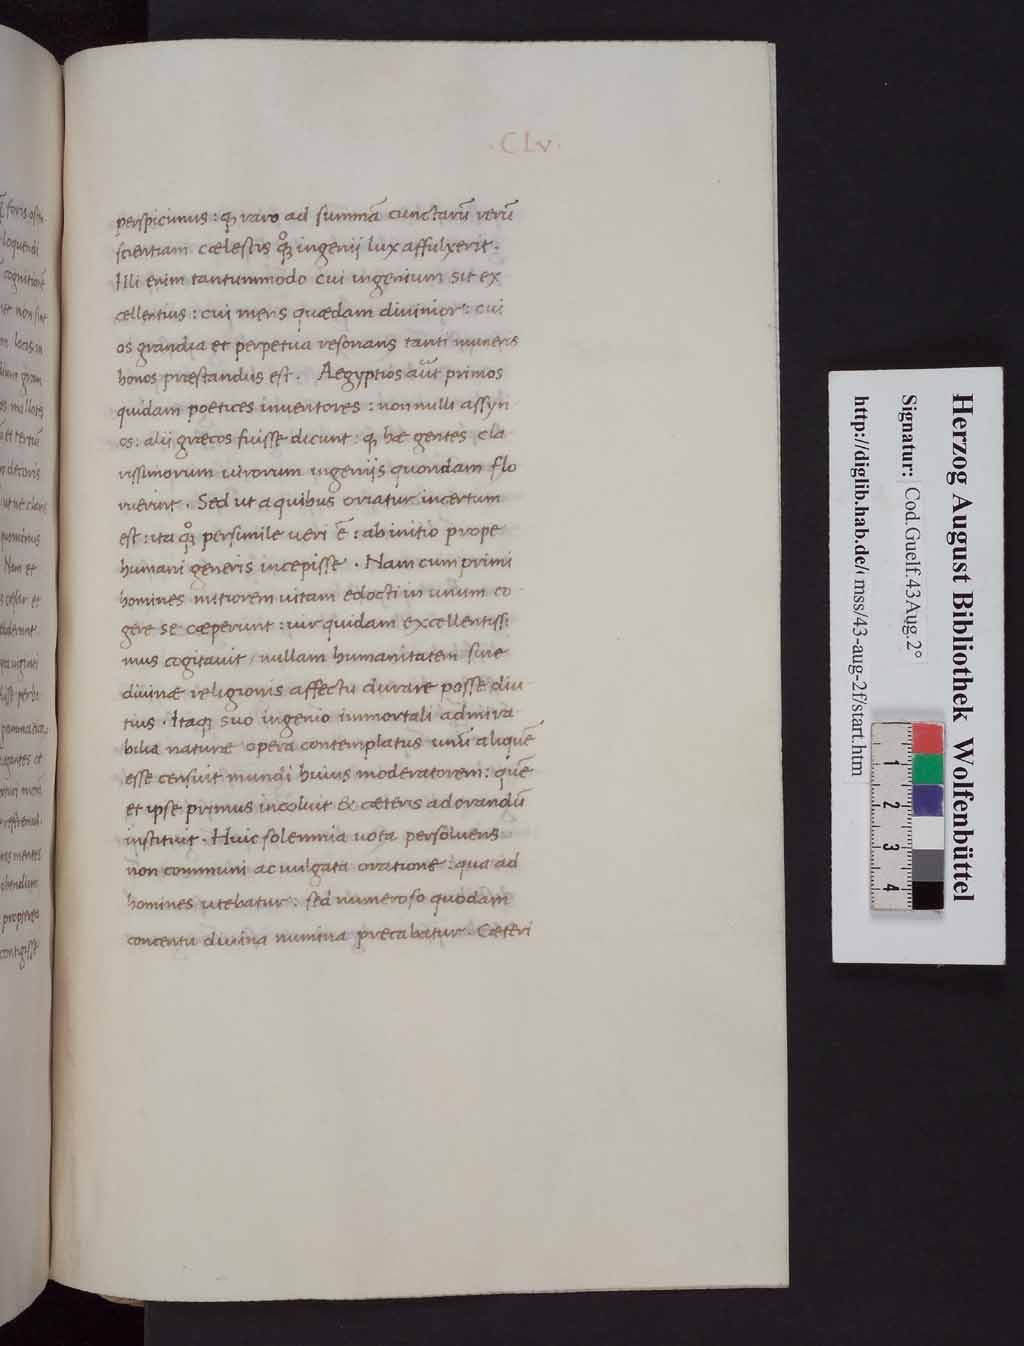 ·CLv·
perspicimus: qꝫ raro ad summā cunctarū rerū
scientiam cælestis qͦꝫ ingenij lux affulxerit.
Illi enim tantummodo cui ingenium sit ex
cellentius: cui mens quædam diuinior: cui
os grandia et perpetua resonans tanti muneris
honos præstandus est. Aegyptios aūt primos
quidam poetices inuentores: nonnulli assyri
os: alij græcos fuisse dicunt: qꝫ hæ gentes cla
rissimorum uirorum ingenijs quondam flo
ruerint. Sed ut a quibus oriatur incertum
est: ita qͦꝫ persimile ueri ē: ab initio prope
humani generis incepisse. Nam cum primi
homines mitiorem uitam edocti in unum co
gere se cæperunt: uir quidam excellentissi
mus cogitauit / nullam humanitatem siue
diuinæ religionis affectu durare posse diu
tius. Itaqꝫ suo ingenio immortali admira
bilia naturæ opera contemplatus unū aliquē
esse censuit mundi huius moderatorem: quē
et ipse primus incoluit & cæteris adorandū
instituit. Huic solemnia uota persoluens
non communi ac uulgata oratione: qua ad
homines utebatur: sed numeroso quodam
concentu diuina numina precabatur. Cæteri
ꝗ foris
loquendi
cognitionē
non sint
Nam et
et
Herzog August Bibliothek Wolfenbüttel
Signatur: Cod. Guelf. 43 Aug. 2°
http://diglib.hab.de/ mss/43-aug-2f/start.htm
1 2 3 4